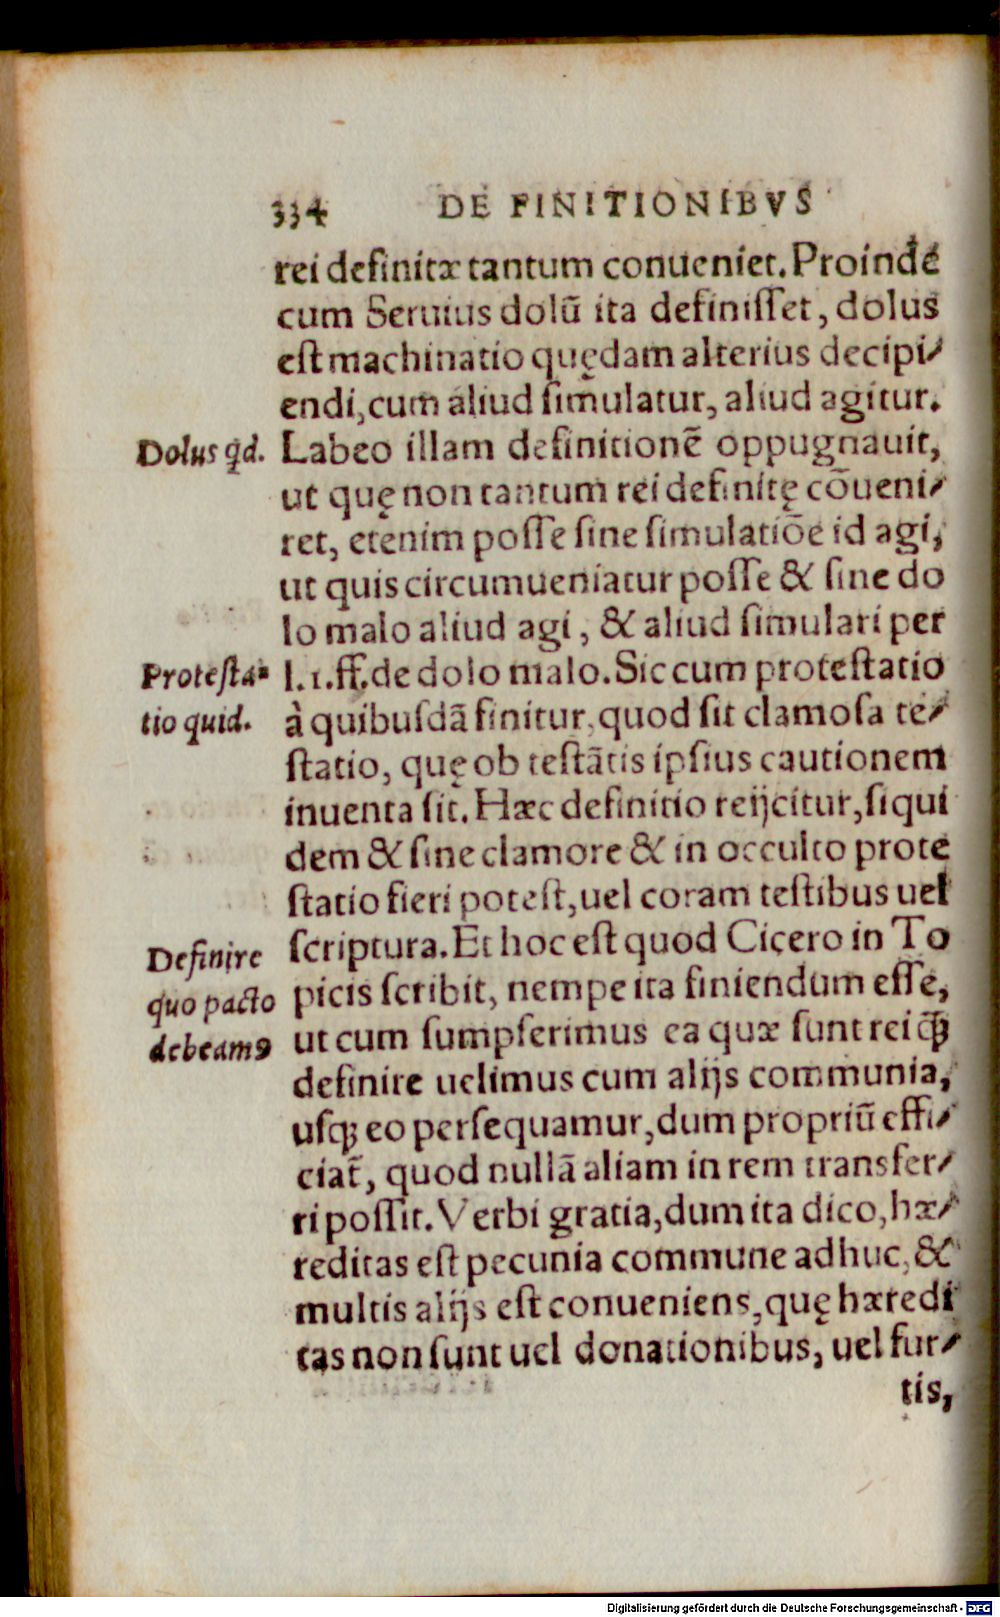 334 DE FINITIONIBVS
rei definitæ tantum conueniet. Proinde
cum Seruius dolū ita definiſſet, dolus
eſt machinatio quędam alterius decipi⸗
endi, cum aliud ſimulatur, aliud agitur.
Dolus qd.
Labeo illam definitionē oppugnauit,
ut quę non tantum rei definitę cōueni⸗
ret, etenim poſſe ſine ſimulatiōe id agi,
ut quis circumueniatur poſſe & ſine do
lo malo aliud agi, & aliud ſimulari per
Proteſta⸗
tio quid.
l.1.ff.de dolo malo. Sic cum proteſtatio
à quibuſdā finitur, quod ſit clamoſa te⸗
ſtatio, quę ob teſtātis ipſius cautionem
inuenta ſit. Hæc definitio reijcitur, ſiqui
dem & ſine clamore & in occulto prote
ſtatio fieri poteſt, uel coram teſtibus uel
ſcriptura. Et hoc eſt quod Cicero in To
Definire
quo pacto
debeamꝰ
picis ſcribit, nempe ita finiendum eſſe,
ut cum ſumpſerimus ea quæ ſunt rei ꝙ̃
definire uelimus cum alijs communia,
uſqꝫ eo perſequamur, dum propriū effi⸗
ciat̃, quod nullā aliam in rem transfer⸗
ri poſſit. Verbi gratia, dum ita dico, hæ⸗
reditas eſt pecunia commune adhuc, &
multis alijs eſt conueniens, quę hæredi
tas non ſunt uel donationibus, uel fur⸗
tis,
Digitalisierung gefördert durch die Deutsche Forschungsgemeinschaft - DFG